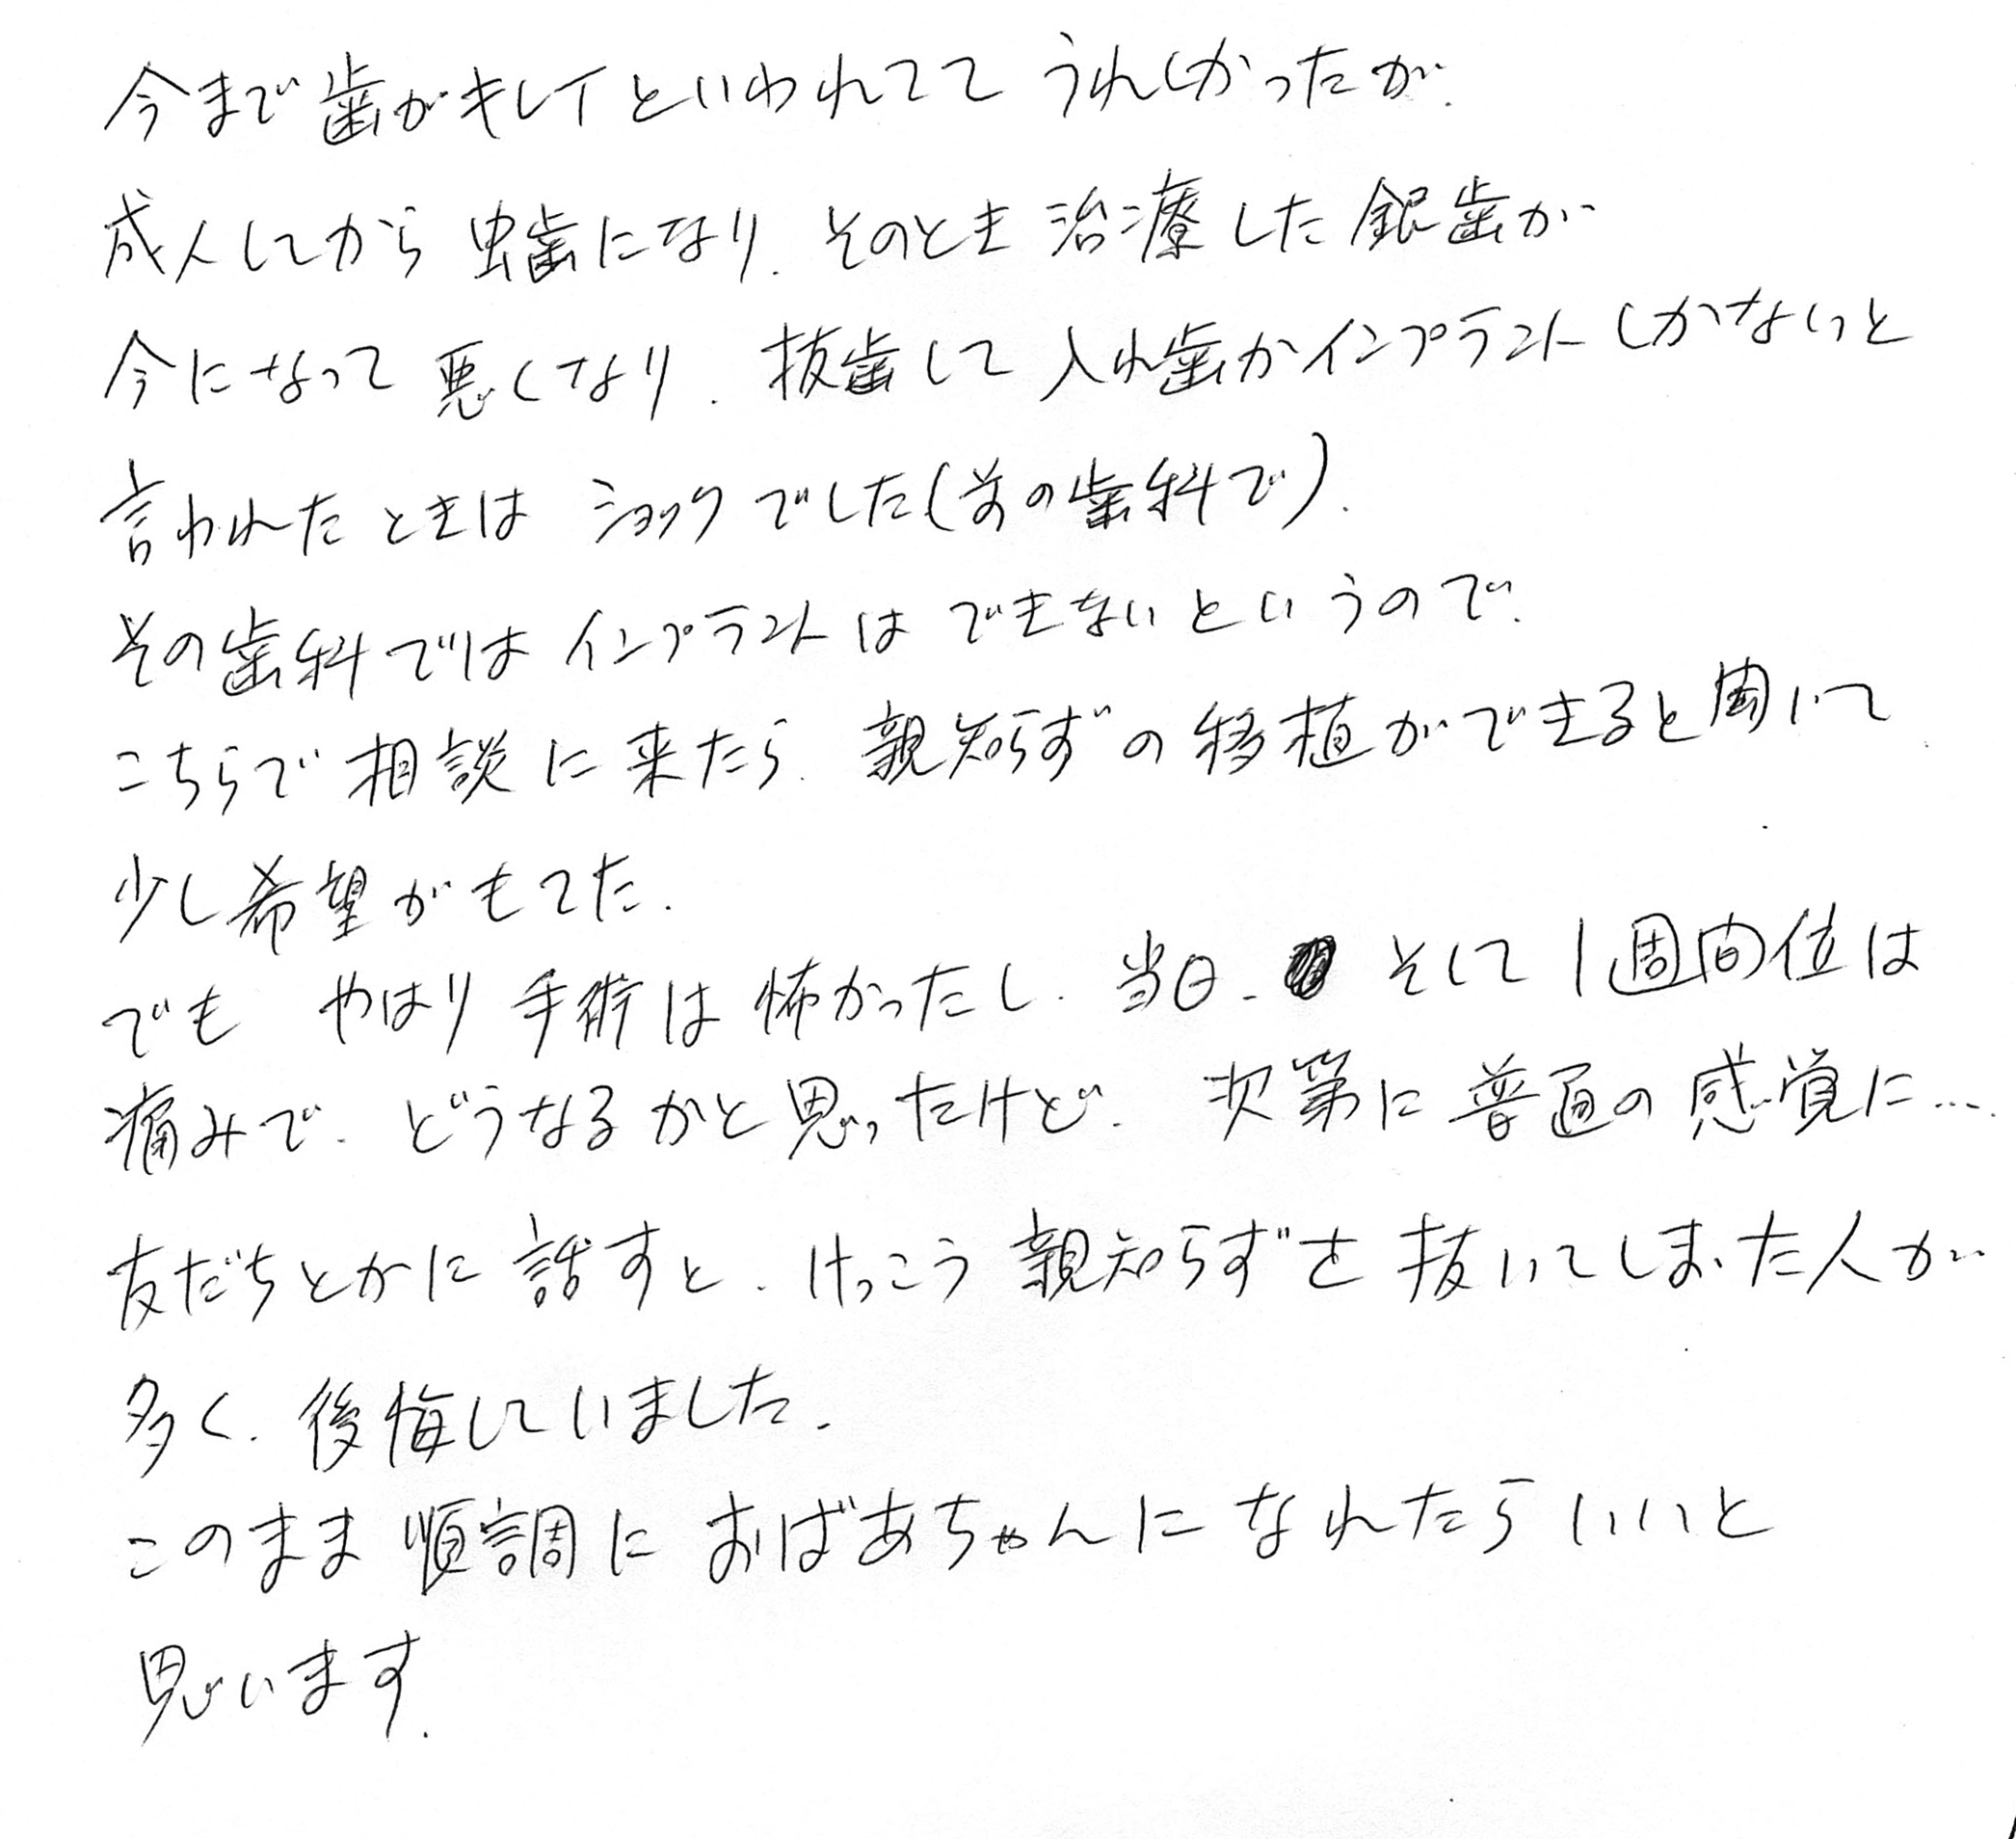 今まで歯がキレイといわれてて うれしかったが、
成人してから 虫歯になり、そのとき 治療した 銀歯が
今になって 悪くなり、抜歯して 入れ歯かインプラントしかないと
言われたときは ショックでした(前の歯科で)。
その歯科では インプラントは できないというので、
こちらで 相談に来たら、親知らずの移植ができると聞いて
少し希望がもてた。
でも やはり 手術は 怖かったし、当日、そして1週間位は
痛みで、どうなるかと思ったけど、次第に普通の感覚に…
友だちとかに 話すと、けっこう 親知らずを 抜いてしまった人が
多く、後悔していました。
このまま 順調に おばあちゃんになれたら いいと
思います。